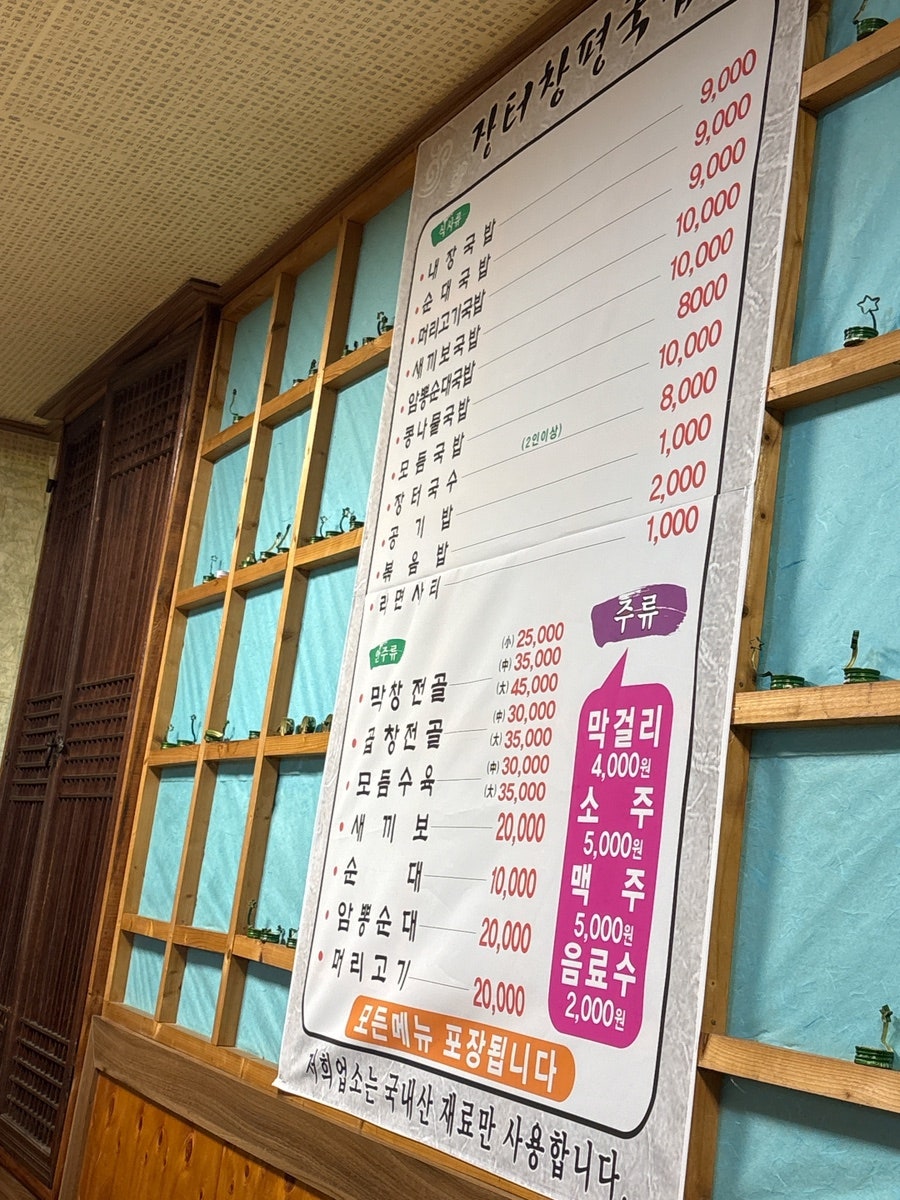 장터창평국밥
식사류
내장국밥 9,000
순대국밥 9,000
머리고기국밥 9,000
새끼보국밥 10,000
암뽕순대국밥 10,000
콩나물국밥 8000
모듬국밥 10,000
장터국수 (2인이상) 8,000
공기밥 1,000
볶음밥 2,000
라면사리 1,000
안주류
막창전골 (小) 25,000
(中) 35,000
(大) 45,000
곱창전골 (中) 30,000
(大) 35,000
모듬수육 (中) 30,000
(大) 35,000
새끼보 20,000
순대 10,000
암뽕순대 20,000
머리고기 20,000
주류
막걸리
4,000원
소주
5,000원
맥주
5,000원
음료수
2,000원
모든메뉴 포장됩니다
저희업소는 국내산 재료만 사용합니다.